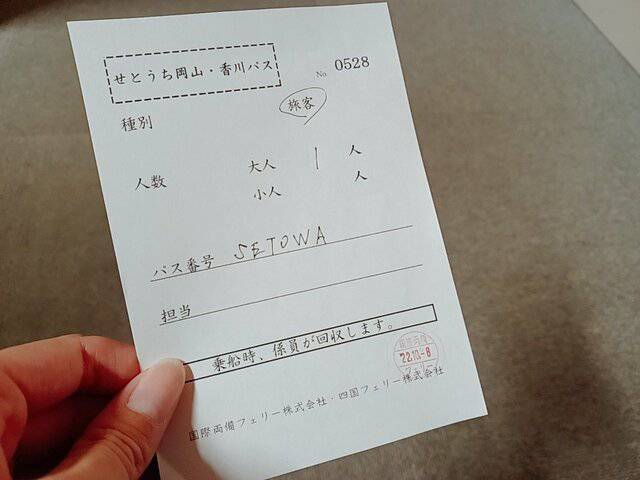 せとうち岡山・香川パス
No. 0528
種別 旅客
人数 大人 1 人
小人 人
パス番号 SETOWA
担当
乗船時、係員が回収します。
22.10.-8
国際両備フェリー株式会社・四国フェリー株式会社